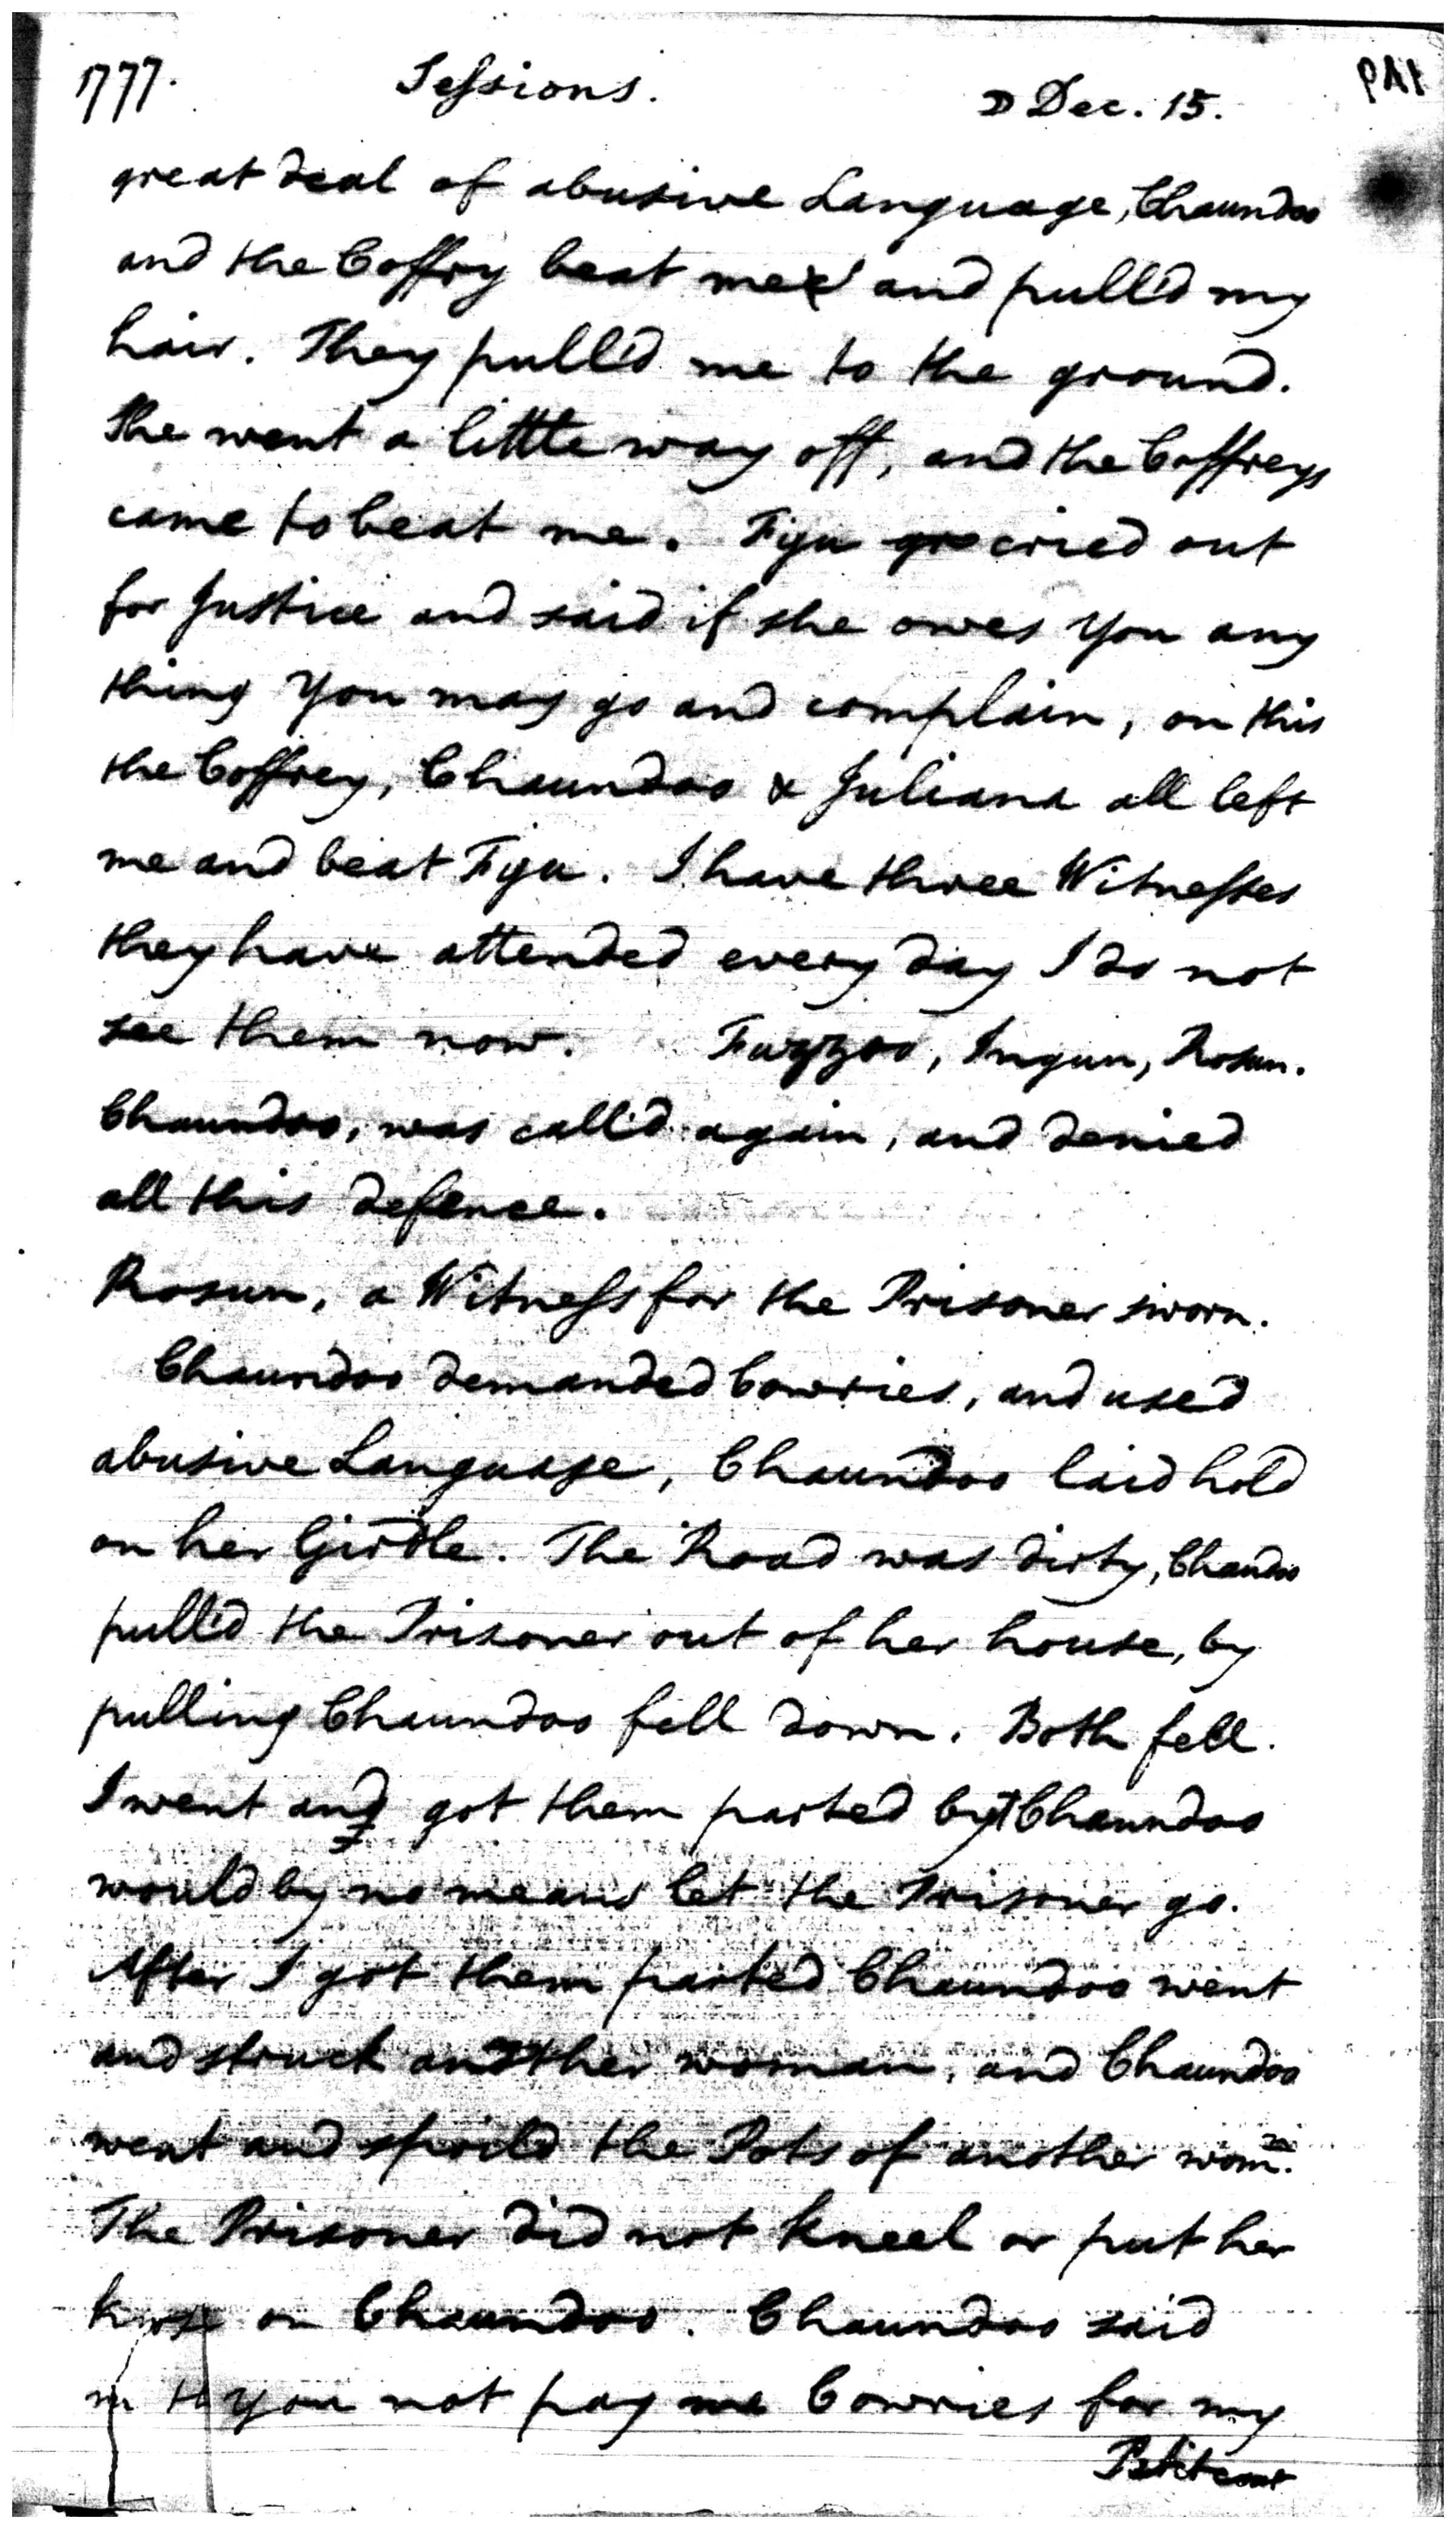 1777. Sessions. ☽ Dec. 15.
great deal of abusive Language, Chaundoo
and the Coffry beat me and pull'd my
hair. They pull'd me to the ground.
She went a little way off, and the Coffreys
came to beat me. Fyu cried out
for Justice and said if she owes You any
thing You may go and complain, on this
the Coffrey, Chaundoo & Juliana all left
me and beat Fyu. I have three Witnesses
they have attended every day I do not
see them now. Fuzzoo, Ingun, Rosun.
Chaundoo, was call'd again, and denied
all this defence.
Rosun, a Witness for the Prisoner sworn.
Chaundoo demanded Cowries, and used
abusive Language, Chaundoo laid hold
on her Girdle. The Road was dirty, Chaundoo
pull'd the Prisoner out of her house, by
pulling Chaundoo fell down. Both fell.
I went and got them parted but Chaundoo
would by no means let the Prisoner go.
After I got them parted Chaundoo went
and struck another woman, and Chaundoo
went and spoild the Pots of another wom̅.
The Prisoner did not kneel or put her
knee on Chaundoo. Chaundoo said
you not pay me Cowries for my
Petticoat